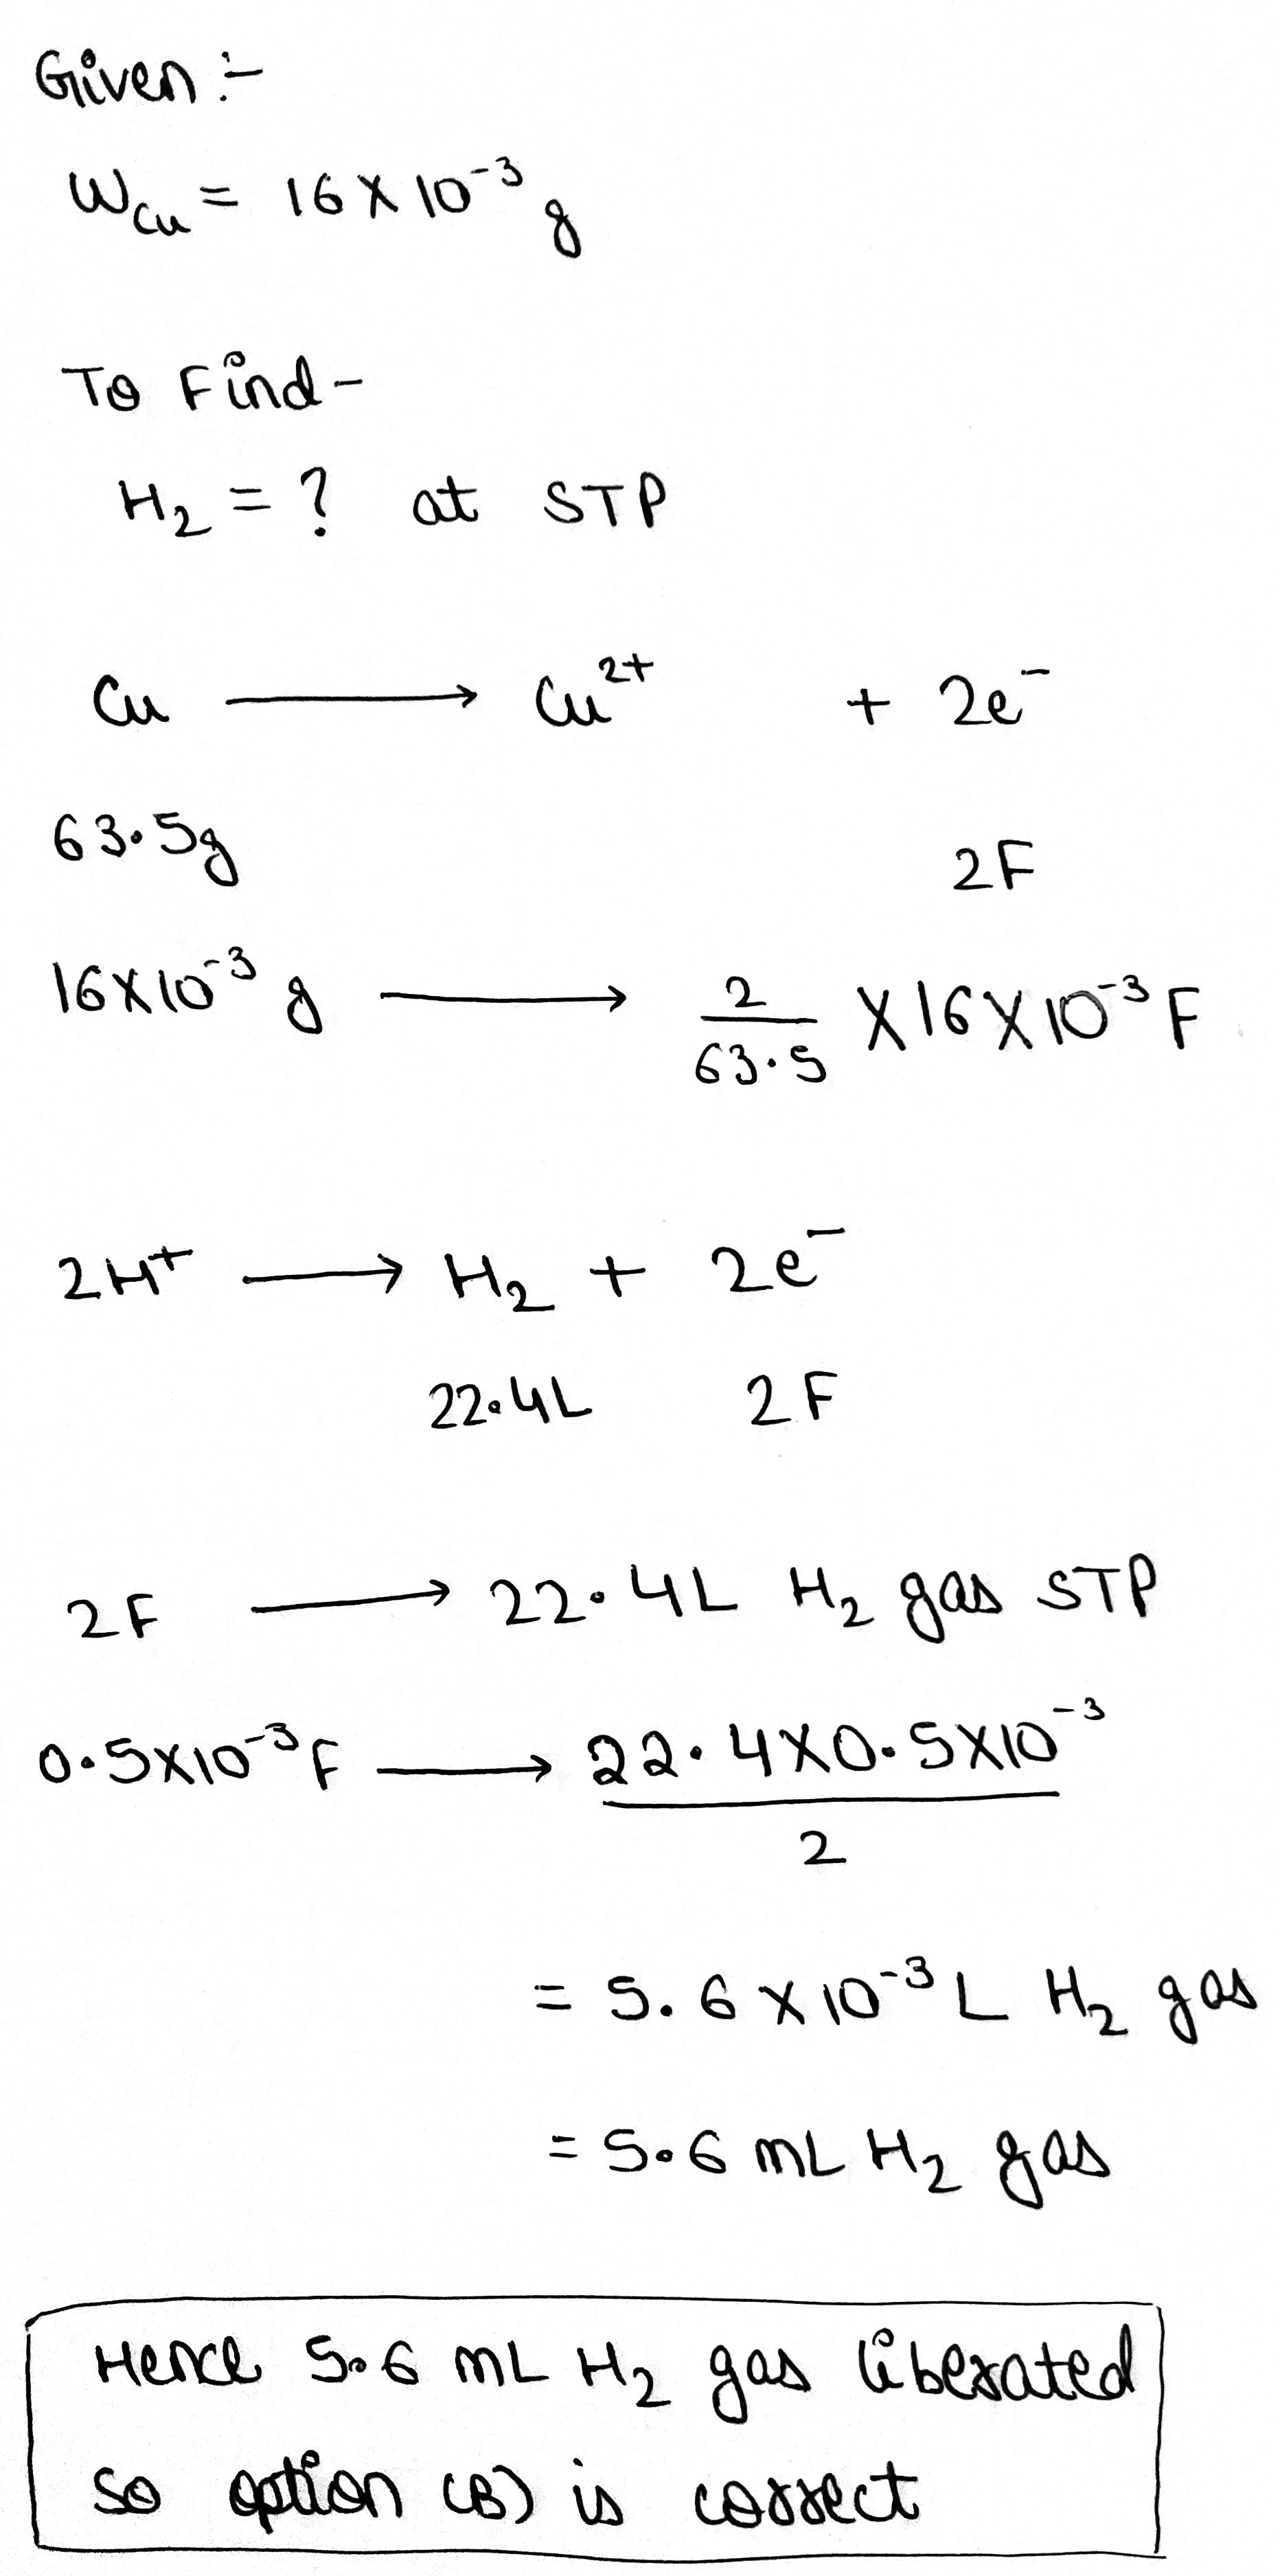 Given :-
W_Cu = 16 X 10⁻³ g
To Find -
H₂ = ? at STP
Cu ⟶ Cu²⁺ + 2e⁻
63.5g 2F
16X10⁻³ g ⟶ 2/63.5 X16X10⁻³ F
2H⁺ ⟶ H₂ + 2e⁻
22.4L 2F
2F ⟶ 22.4L H₂ gas STP
0.5X10⁻³F ⟶ 22.4X0.5X10⁻³/2
= 5.6 X 10⁻³ L H₂ gas
= 5.6 mL H₂ gas
Hence 5.6 mL H₂ gas liberated
so option (B) is correct